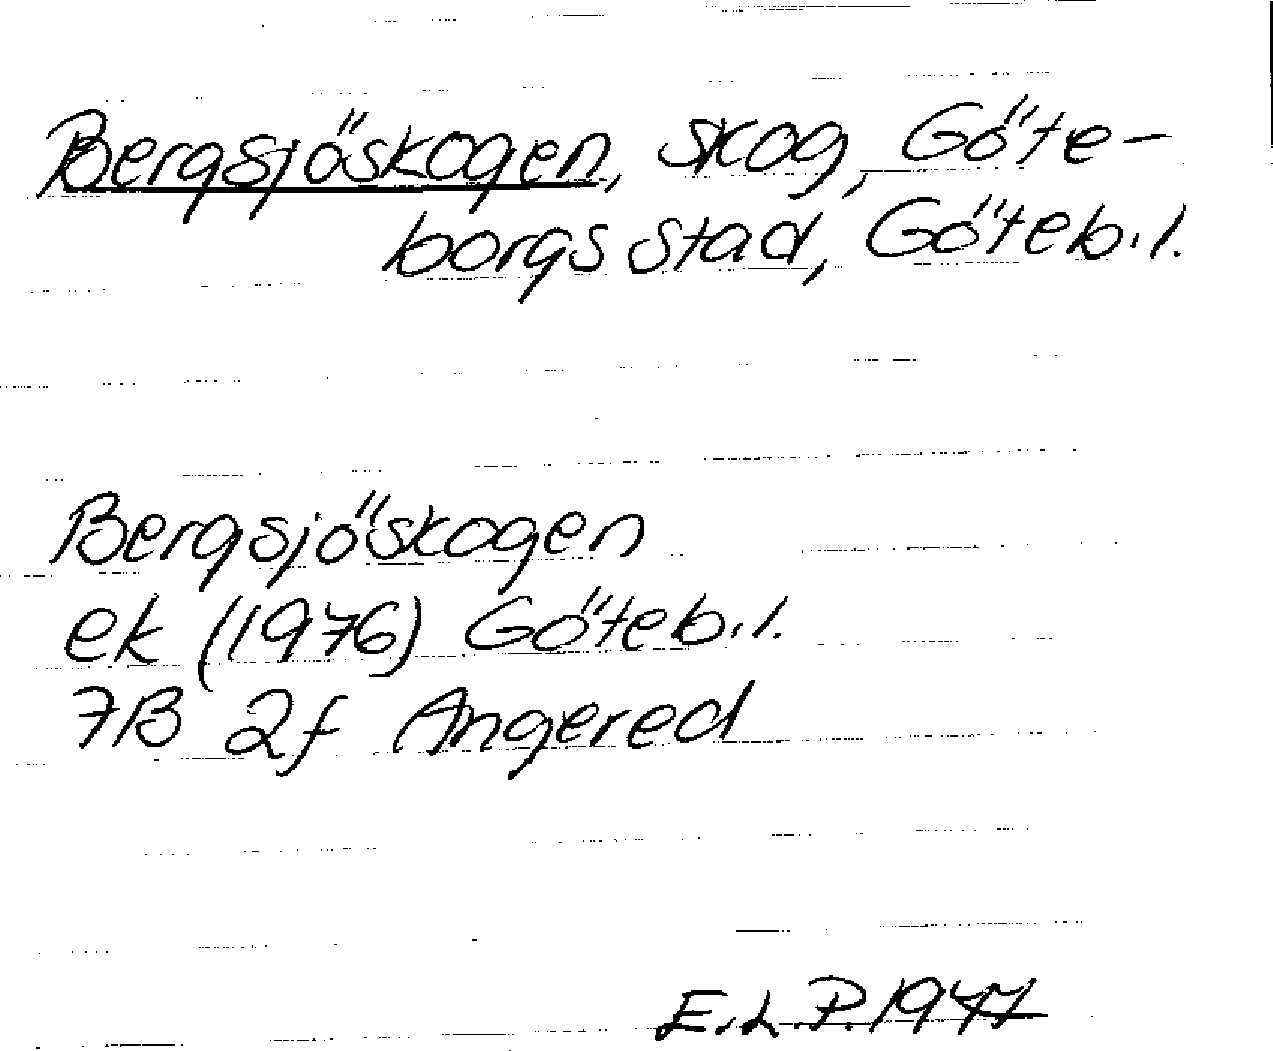 Bergsjöskogen, skog, Göte-
borgs stad, Göteb.l.
Bergsjöskogen
ek (1976) Göteb.l.
7B 2f Angered
E.L.P. 1977